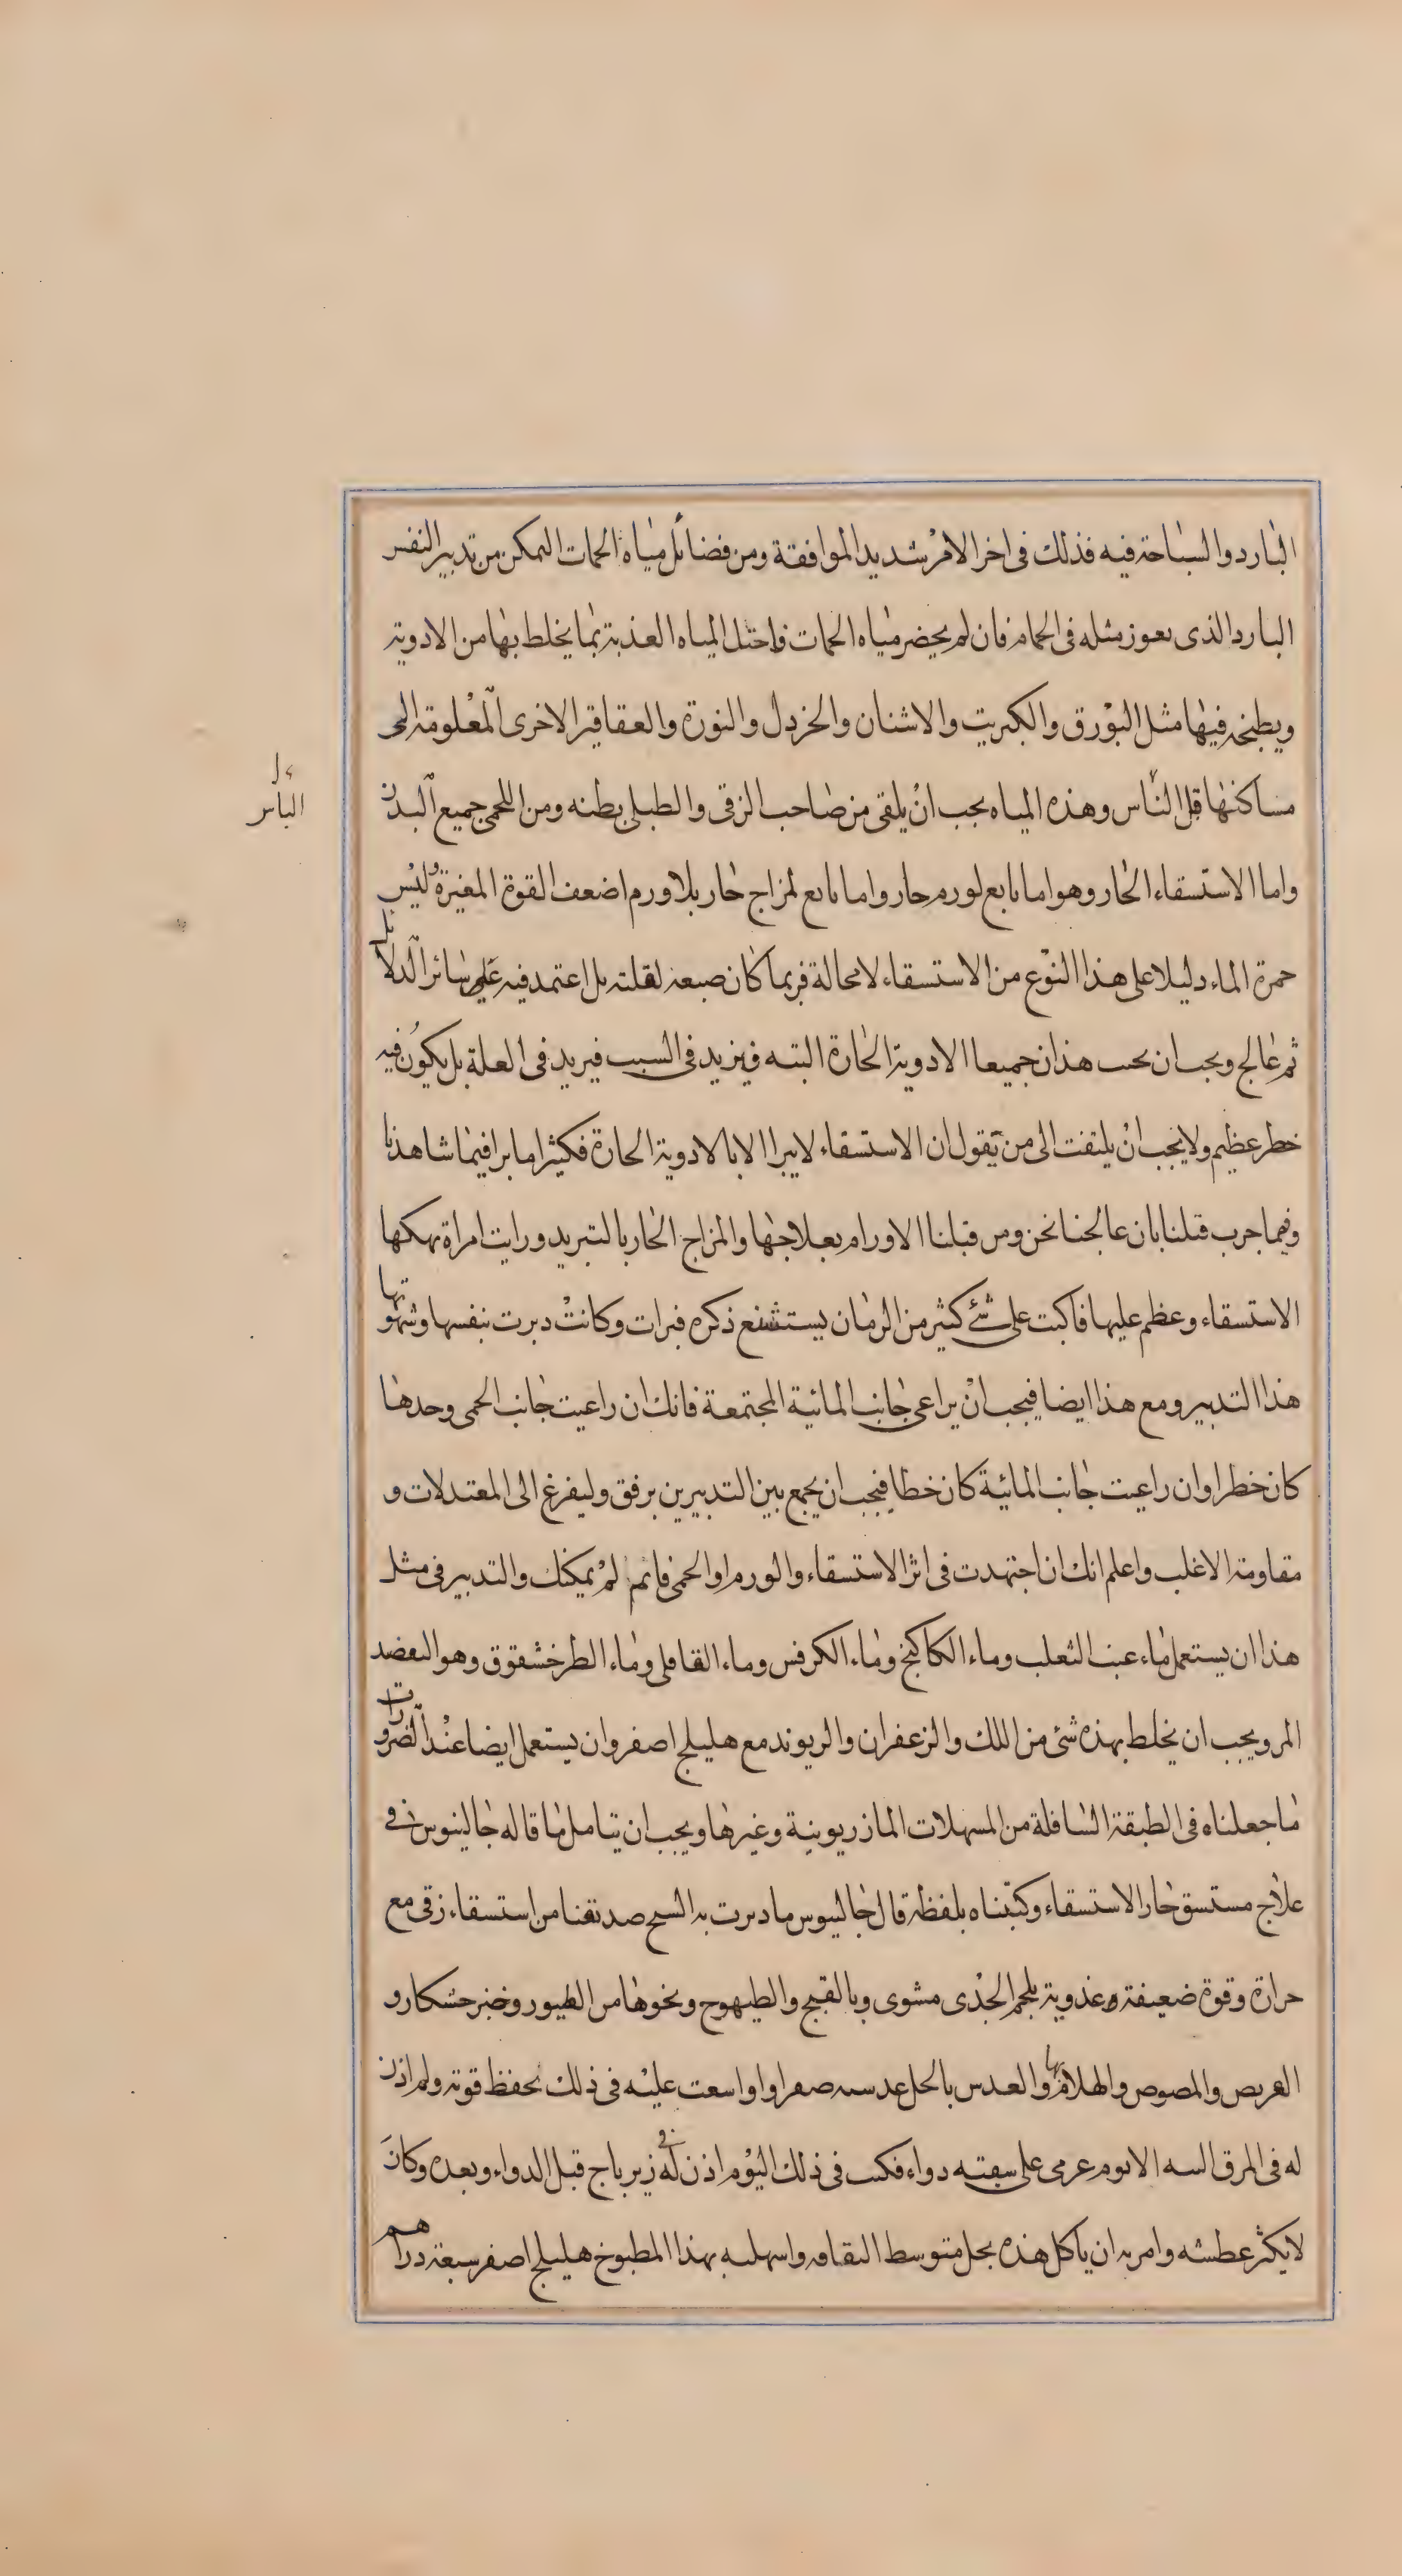 البارد والسباحة فيه فذلك فى اخر الامر شديد الموافقة ومن فضائل مياه الحمات التمكن من تدبير النفس
البارد الذى يعوز مثله فى الحمام فان لم يحضر مياه الحمات فاحتل المياه العذبة بما يخلط بها من الادوية
ويطبخ فيها مثل البورق والكبريت والاشنان والخردل والنورة والعقاقير الاخرى المعلومة التى
مساكنها قل الناس وهذه المياه يجب ان يلقى من صاحب الزقى والطبلى بطنه ومن اللحمى جميع البدن
واما الاستسقاء الحار وهو اما تابع لورم حار واما تابع لمزاج حار بلا ورم اضعف القوة المغيرة وليس
حمرة الماء دليلا على هذا النوع من الاستسقاء لا محالة فربما كان صبغه لقلته بل اعتمد فيه على سائر الدلايل
ثم عالج ويجب ان يجب هذان جميعا الادوية الحارة البته فيزيد فى السبب فيزيد فى العلة بل يكون فيه
خطر عظيم ولا يجب ان يلتفت الى من يقول ان الاستسقاء لا يبرا الا بالادوية الحارة فكثيرا ما برا فيما شاهدنا
وفيما جرب قبلنا بان عالجنا نحن ومن قبلنا الاورام بعلاجها والمزاج الحار بالتبريد ورايت امراة نهكها
الاستسقاء وعظم عليها فاكبت على شئ كثير من الرمان يستشنع ذكره فبرات وكانت دبرت بنفسها وشهوتها
هذا التدبير ومع هذا ايضا فيجب ان يراعى جانب المائية المجتمعة فانك ان راعيت جانب الحمى وحدها
كان خطرا وان راعيت جانب المائية كان خطا فيجب ان يجمع بين التدبيرين برفق وليفرغ الى المعتدلات و
مقاومة الاغلب واعلم انك ان اجتهدت فى اثر الاستسقاء والورم او الحمى قائم لم يمكنك والتدبير فى مثل
هذا ان يستعمل ماء عنب الثعلب وماء الكاكنج وماء الكرفس وماء القاقلى وماء الطرخشقوق وهو التعضيد
المر ويجب ان يخلط بهذه شئ من اللك والزعفران والريوند مع هليلج اصفر وان يستعمل ايضا عند الضرورات
ما جعلناه فى الطبقة السافلة من المسهلات المازريونية وغيرها ويجب ان يتامل ما قاله جالينوس فى
علاج مستسق حار الاستسقاء وكتبناه بلفظه قال جالينوس ما دبرت به الشيخ صديقنا من استسقاء زقى مع
حرارة وقوة ضعيفة وغذوته بلحم الجدى مشوى وبالقبج والطيهوج ونحوها من الطيور وخبز خشكار و
القريص والمصوص والهلام بها والعدس بالخل عدسيه صفرا واوسعت عليه فى ذلك لحفظ قوته ولم اذن
له فى المرق البته الا يوم عزمى على سقيه دواء فكنت فى ذلك اليوم اذن له فى زيرباج قبل الدواء وبعده وكان
لا يكثر عطشه وامر به ان ياكل هذه بخل متوسط الثقافه واسهله بهذا المطبوخ هليلج اصفر سبعة دراهم
الباس